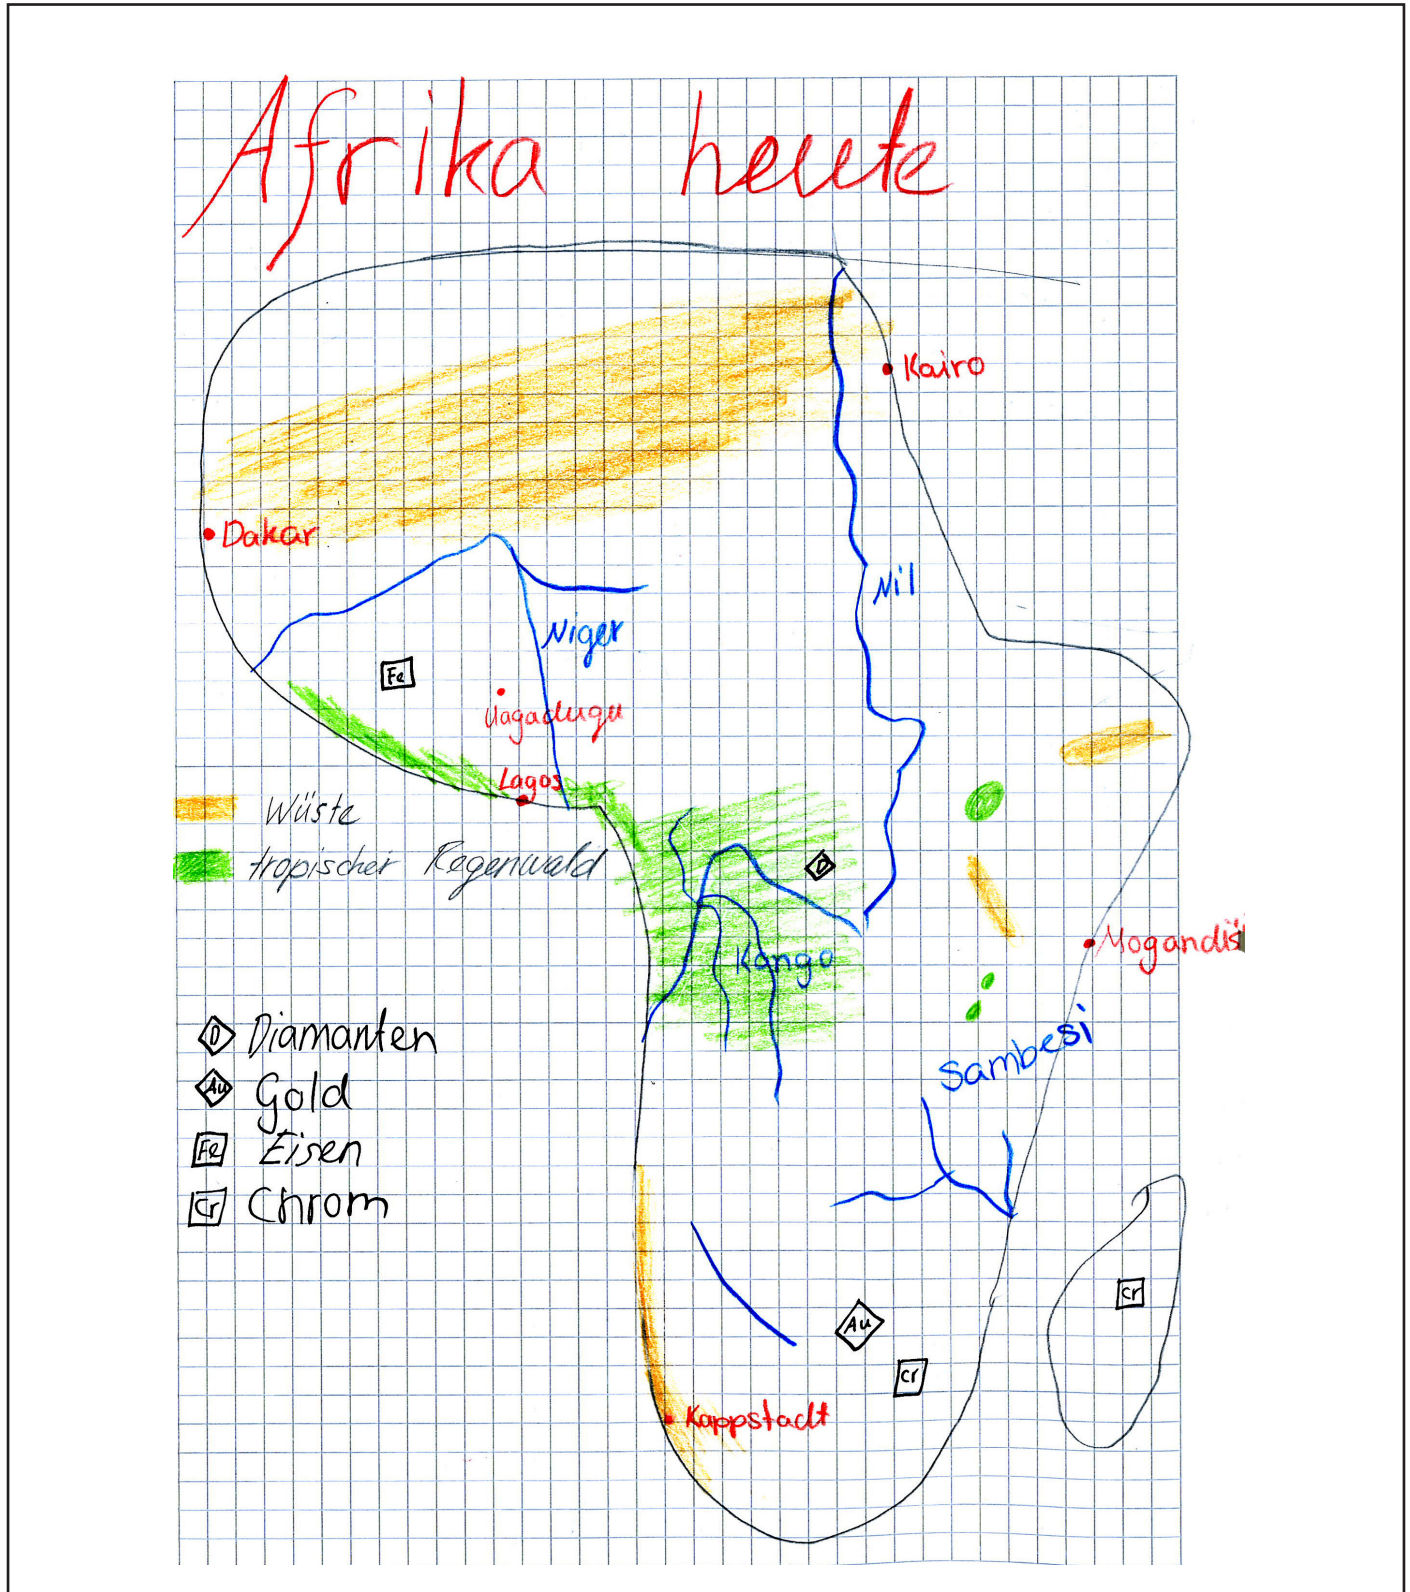 Afrika heute
Kairo
Dakar
Nil
Niger
Fe
Uagadugu
Lagos
Wüste
tropischer Regenwald
D
Kongo
Mogandis
D Diamanten
Au Gold
Fe Eisen
Cr Chrom
Sambesi
Cr
Au
Cr
Kappstadt